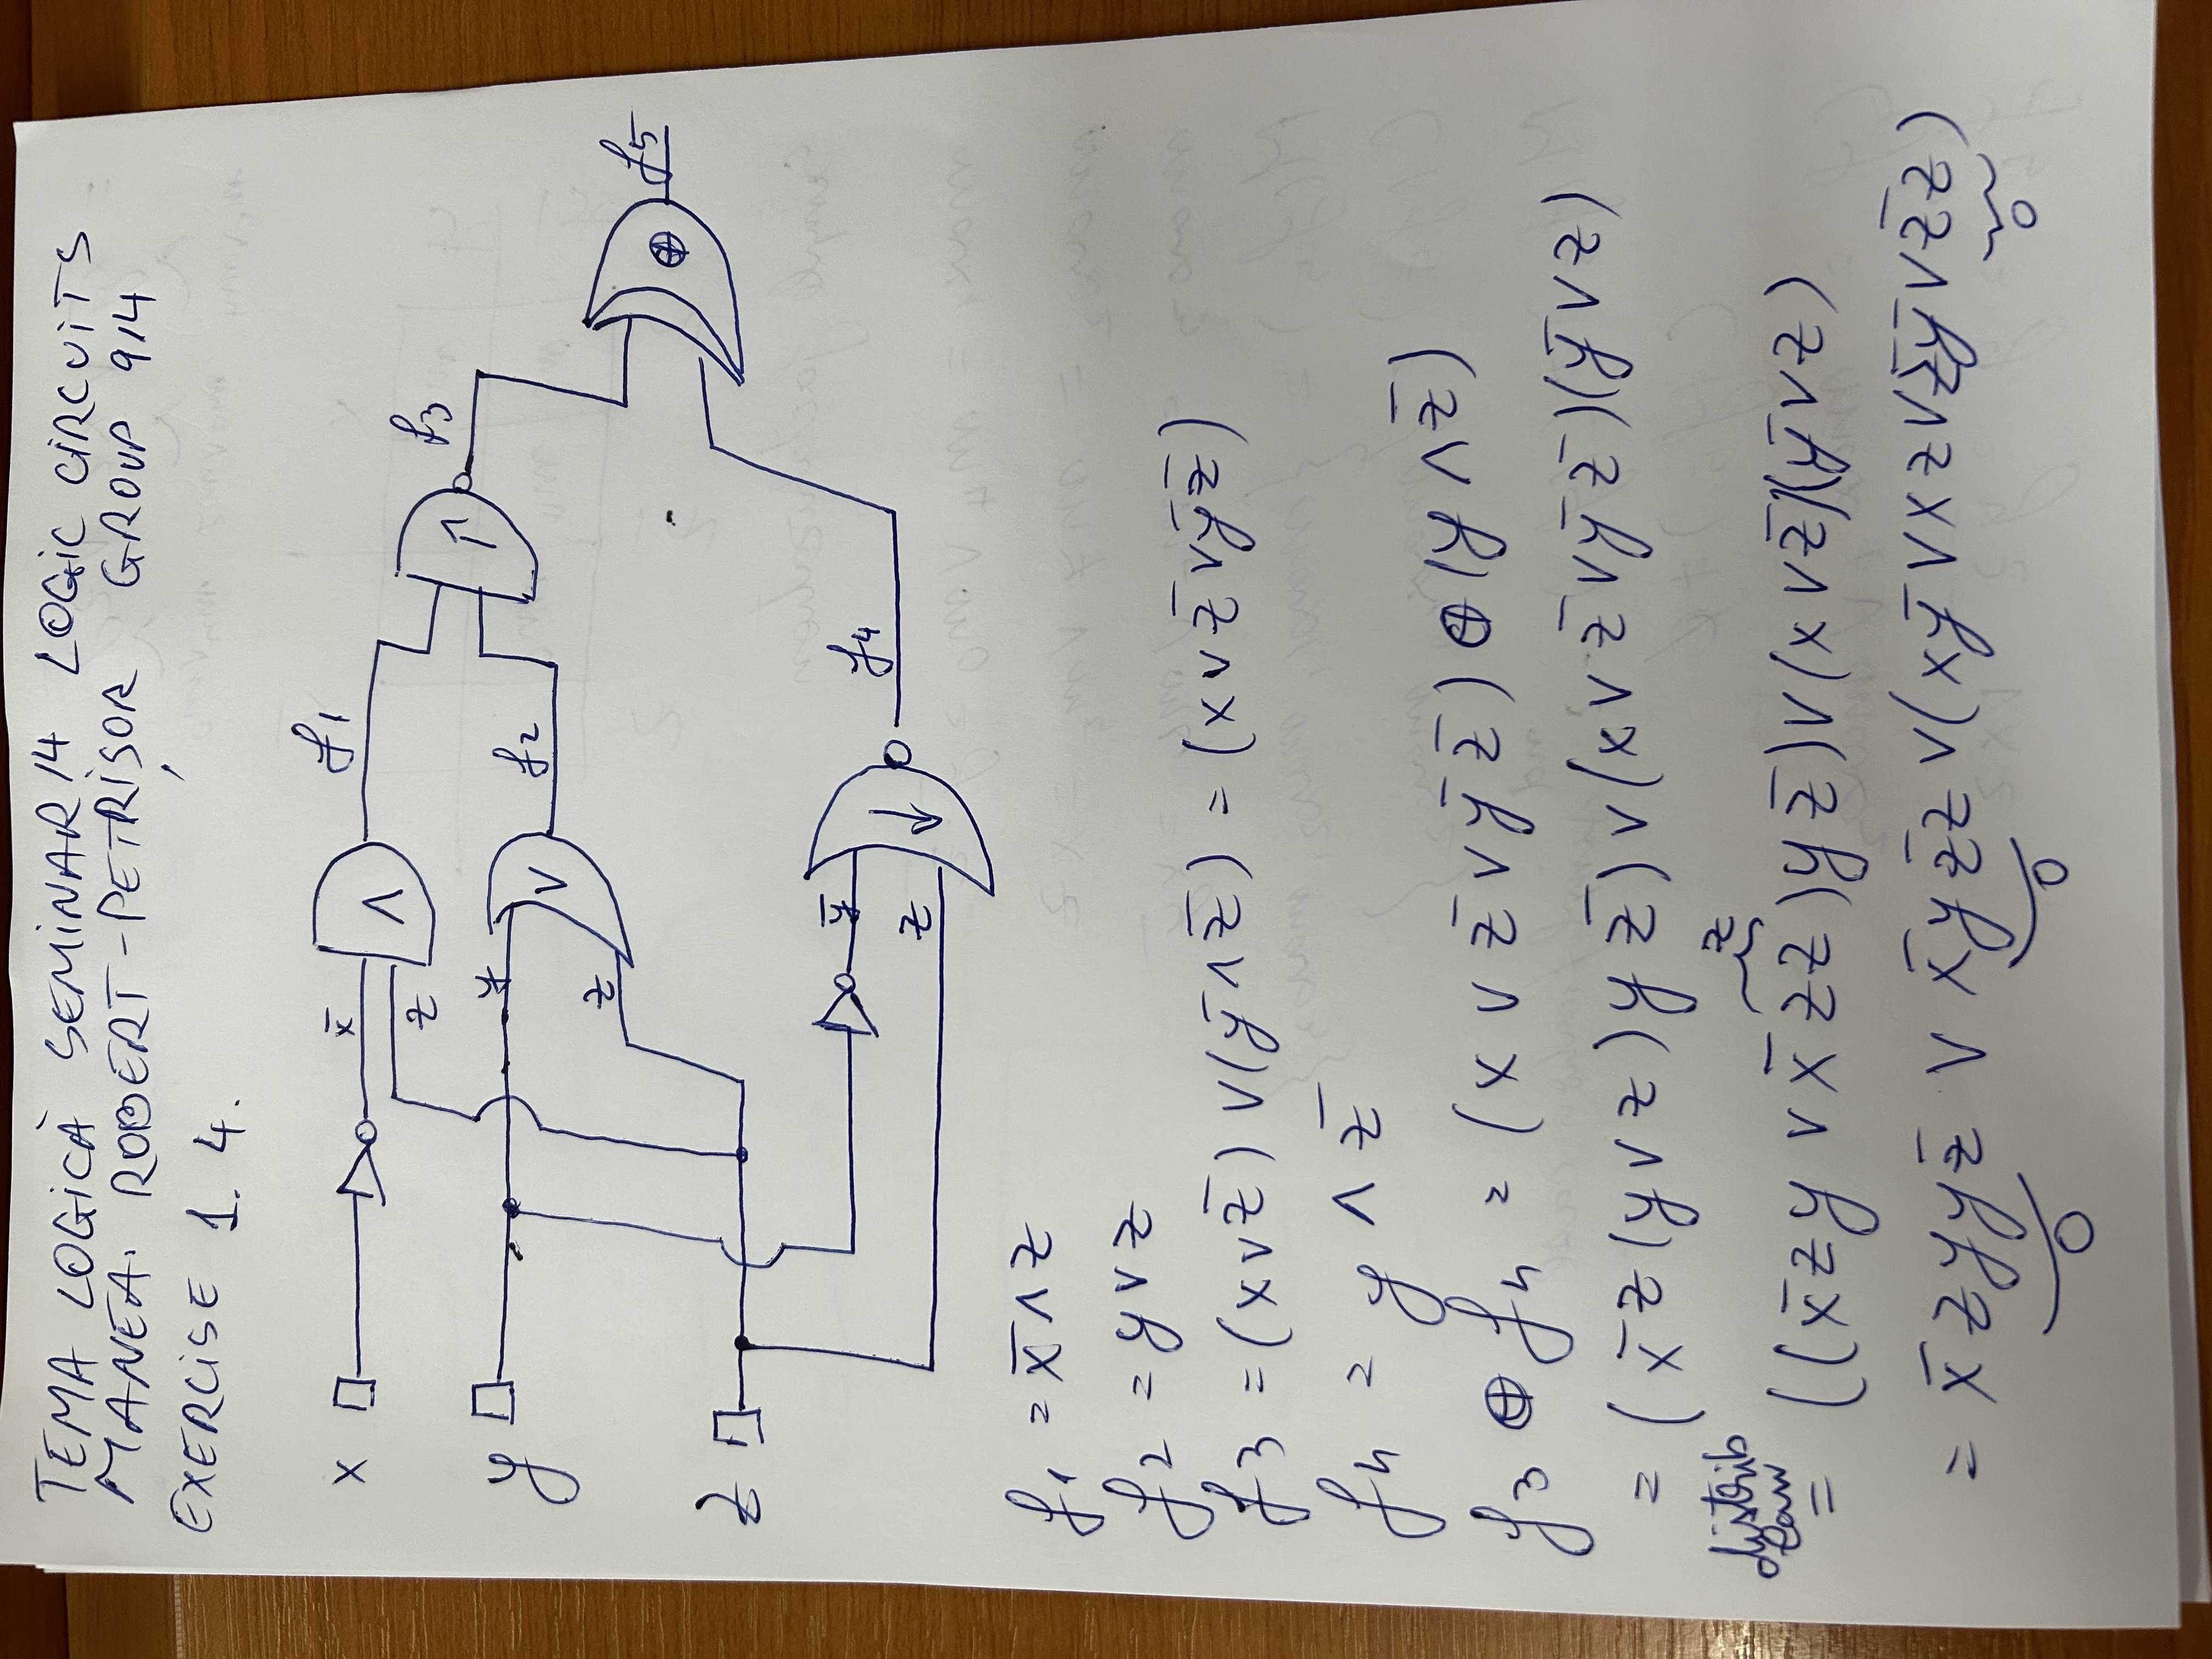 TEMA LOGICĂ SEMINAR 14 LOGIC CIRCUITS
MANEA ROBERT-PETRIȘOR GROUP 914
EXERCISE 1. 4.
x x̄ ∧ f1
z
y y ∨ f2 ↑ f3
z
z ⊕ f5
ȳ ↓ f4
z
f1 = x̄ ∧ z
f2 = y ∨ z
f3 = (x ∨ z̄) ∨ (ȳ ∧ z̄) = (x ∨ z̄ ∨ ȳ z̄)
f4 = y ∧ z̄
f3 ⊕ f4 = (x ∨ z̄ ∨ ȳ z̄) ⊕ (y ∧ z̄)
= (x̄ z (y ∨ z) y z̄) ∨ (x ∨ z̄ ∨ ȳ z̄)(ȳ ∨ z)
distrib
law
z
= ((x̄ z y ∨ x̄ z z) y z̄) ∨ (x ∨ z̄)(ȳ ∨ z)
= x̄ z y y z̄ ∨ x̄ y z̄ z ∨ (x ȳ ∨ x z ∨ z̄ ȳ ∨ z̄ z)
0 0 0